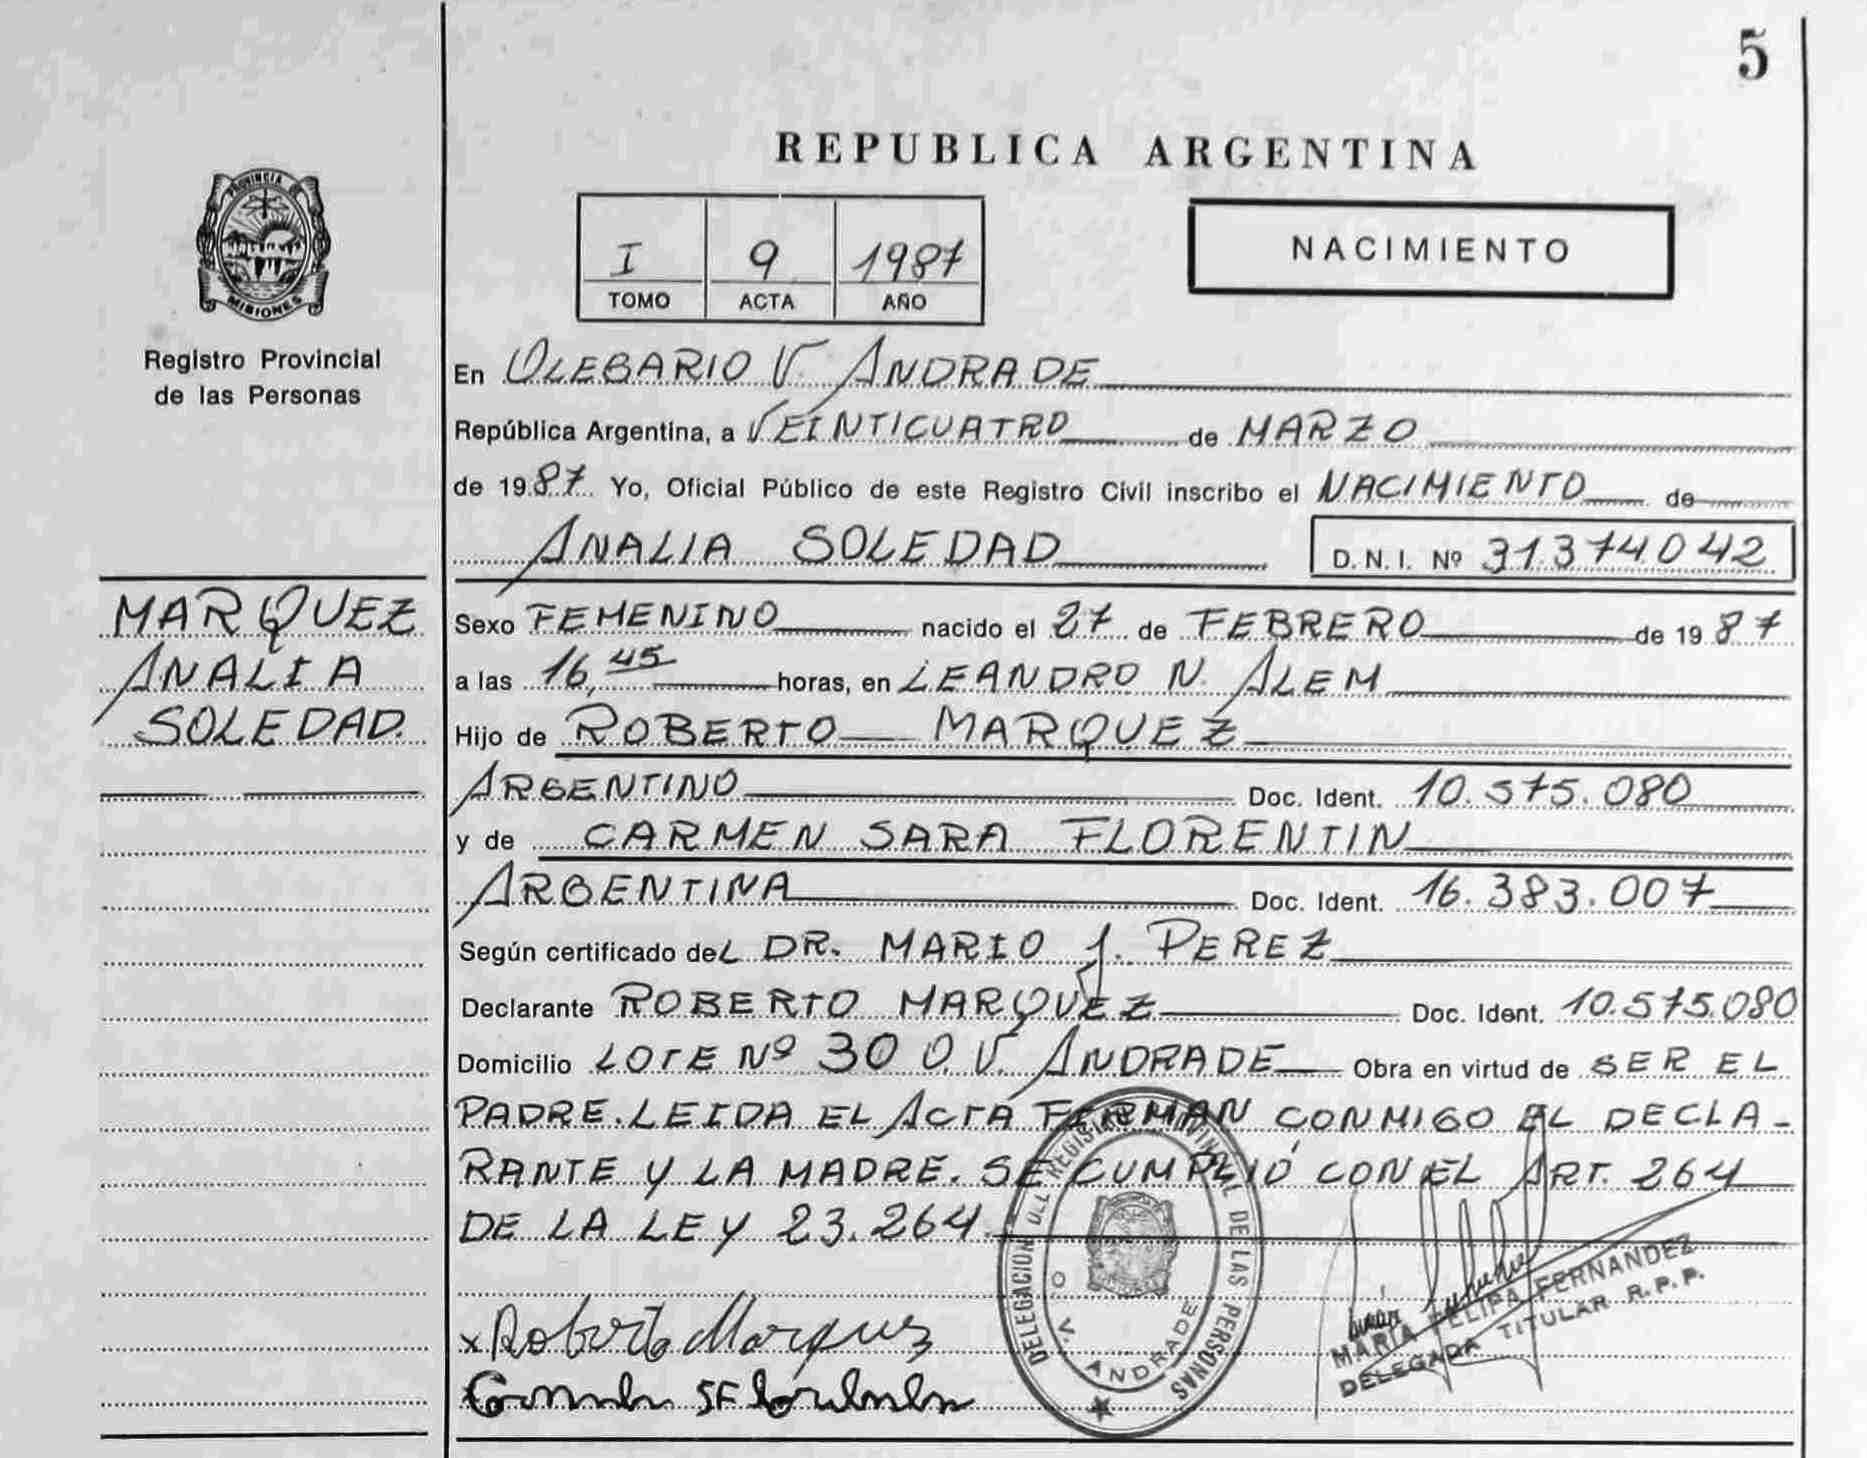 5
REPUBLICA ARGENTINA
PROVINCIA DE
MISIONES
Registro Provincial
de las Personas
I 9 1987
TOMO ACTA AÑO
NACIMIENTO
En OLEGARIO V. ANDRADE
República Argentina, a VEINTICUATRO de MARZO
de 1987 Yo, Oficial Público de este Registro Civil inscribo el NACIMIENTO de
ANALIA SOLEDAD D.N.I. Nº 31.374.042
MARQUEZ
ANALIA
SOLEDAD.
Sexo FEMENINO nacido el 27 de FEBRERO de 1987
a las 16,45 horas, en LEANDRO N. ALEM
Hijo de ROBERTO MARQUEZ
ARGENTINO Doc. Ident. 10.575.080
y de CARMEN SARA FLORENTIN
ARGENTINA Doc. Ident. 16.383.007
Según certificado deL DR. MARIO J. PEREZ
Declarante ROBERTO MARQUEZ Doc. Ident. 10.575.080
Domicilio LOTE Nº 30 O.V. ANDRADE Obra en virtud de SER EL
PADRE. LEIDA EL ACTA FIRMAN CONMIGO EL DECLA-
RANTE Y LA MADRE. SE CUMPLIÓ CON EL ART. 264
DE LA LEY 23.264.
DELEGACION DEL REGISTRO PROVINCIAL DE LAS PERSONAS
O. V. ANDRADE
x Roberto Marquez
MARIA FELIPA FERNANDEZ
DELEGADA TITULAR R.P.P.